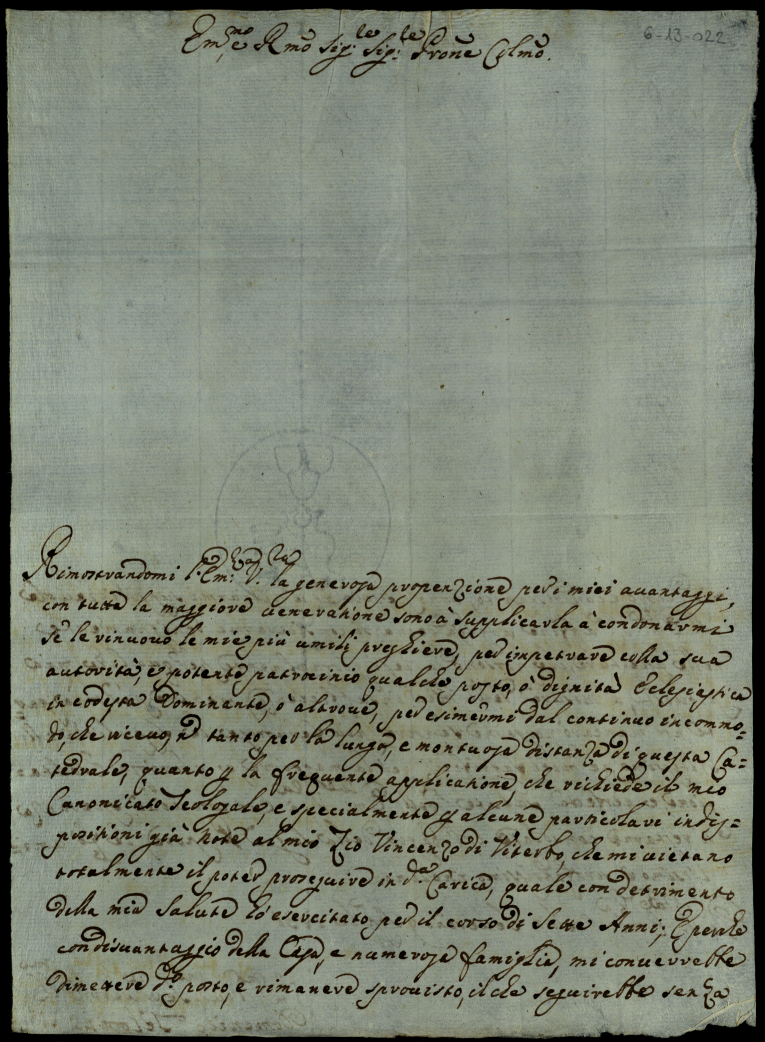 6-13-022
Em.mo e Rmo Sig.re Sig.re Prone Colmo.
Rimostrandomi l'Em.za V.ra la generosa propenzione per i miei auantaggi,
con tutta la maggiore ueneratione sono à supplicarla à condonarmi
se le rinuouo le mie più umili preghiere, per impetrare colla sua
autorità, e potente patrocinio qualche posto, ò dignità Eclesiastica
in codesta Dominante, ò altroue, per esimermi dal continuo incommo=
do, che riceuo, nè tanto per la lunga, e montuosa distanza di questa Ca=
tedrale, quanto p la frequente applicatione, che richiede il mio
Canonicato Teologale, e specialmente p alcune particolari indis=
positioni già note al mio Zio Vincenzo di Viterbo, che mi uietano
totalmente il poter proseguire in d.a Carica, quale con detrimento
della mia salute hò esercitato per il corso di sette Anni; E perche
con disuantaggio della Casa, e numerosa famiglia, mi conuerrebbe
dimettere d.o posto, e rimanere sprouisto, il che seguirebbe senza